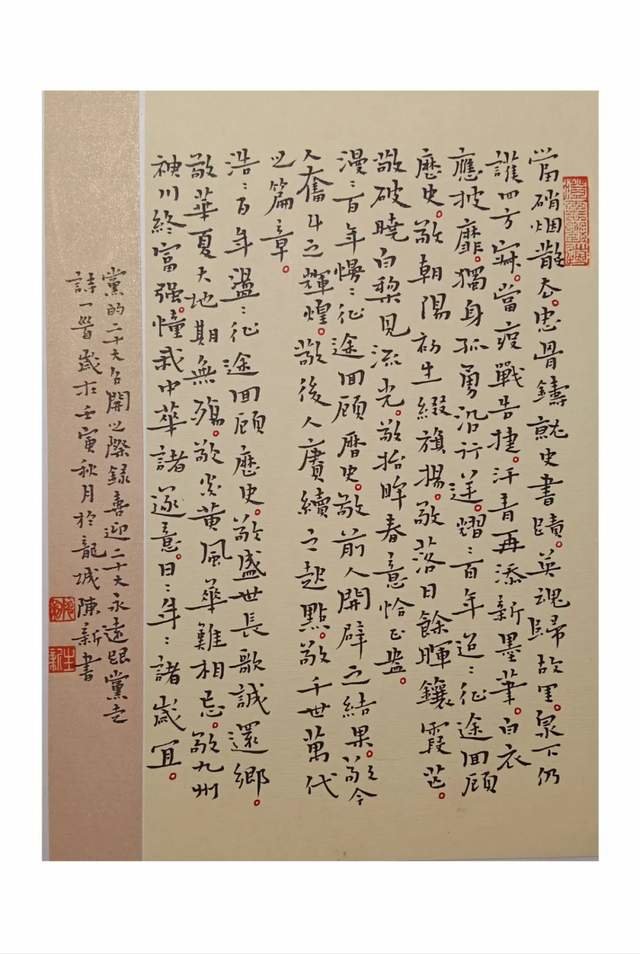 當硝烟散去。忠骨鑄就史書蹟。英魂歸故里。泉下仍
護四方寐。當疫戰告捷。汗青再添新墨筆。白衣
應披靡。獨身孤勇沿行迷。熠：百年迢：征途回顧
歷史。敬朝陽初生綴旗揚。敬落日餘暉鑲霞芒。
敬破曉白梨見流光。敬抬眸春意恰正盎。
漫：百年慢：征途回顧曆史。敬前人開闢之結果。敬今
人奮斗之輝煌。敬後人賡續之起點。敬千世萬代
之篇章。
浩：百年盪：征途回顧歷史。敬盛世長歌誠還鄉。
敬華夏大地期無殤。敬炎黄風華難相忘。敬九州
神川終富强。憧我中華諸遂意。日：年：諸歲宜。
黨的二十大召開之際録喜迎二十大永遠跟黨走
詩一首歲在壬寅秋月於龍城陳新書